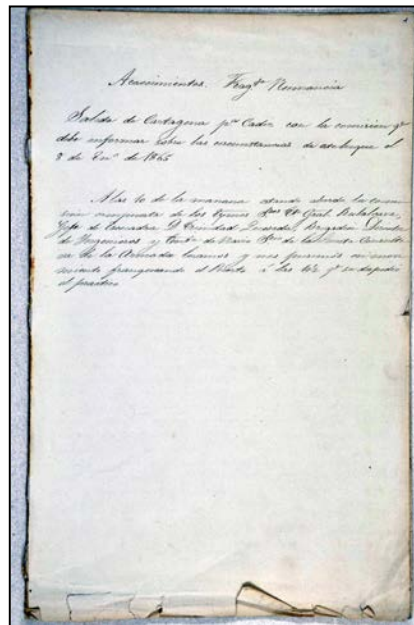 Acaecimientos. Fragta Numancia
Salida de Cartagena pa Cadiz con la comision qe
debe informar sobre las circunstancias de este buque el
8 de Eno de 1865
A las 10 de la mañana estando abordo la comi
sion compuesta de los
Gefe de Escuadra D Trinidad Brigadier
de Ingenieros y de Navio de la Junta Consulti
va de la Armada y nos pusimos en movi
miento franqueando el Puerto á las 10½ qe se despidió
el practico